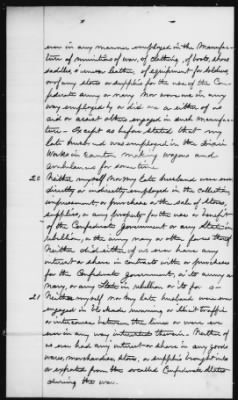 ever in any manner employed in the Manufac-
ture of munitions of war, of clothing, of boots, shoes
saddles, harness leather, of equipment for soldiers,
or of any stores or supplies for the use of the Con-
federate army or navy. Nor were we in any
way employed by or did we or either of us
aid or assist others engaged in such manufac-
ture. Except as before stated that my
late husband was employed in the
Works in Canton making wagons and
ambulances for some time.
20 Neither myself nor my late husband were ever
directly or indirectly employed in the collection,
impressment, or purchase or the sale of stores,
supplies, or any property for the use or benefit
of the Confederate government or any State in
rebellion, or the army navy or other forces thereof
Neither did either of us ever have any
interest or share in contracts with or purchases
for the Confederate government, or its army or
navy, or any State in rebellion or its for
21 Neither myself nor my late husband were ever
engaged in blockade running or illicit traffic
or intercourse between the lines or were we
ever in any way interested therein. Neither of
us ever had any interest or share in any goods
wares, merchandise, stores, or supplies brought into
or exported from the so called Confederate States
during the war.